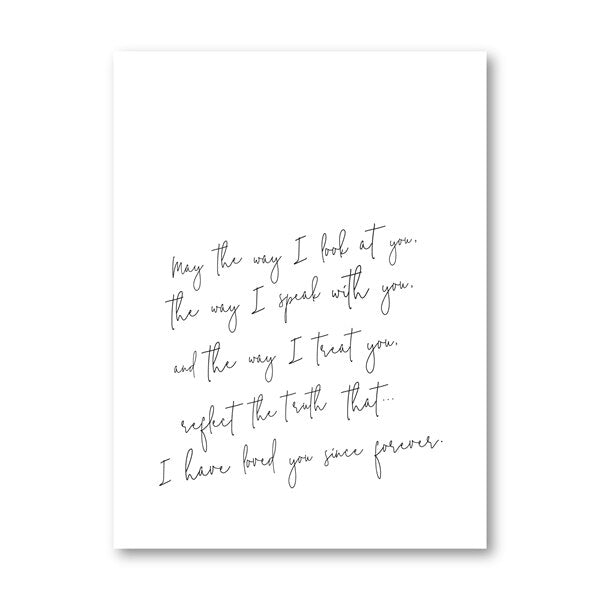 May the way I look at you,
the way I speak with you,
and the way I treat you,
reflect the truth that...
I have loved you since forever.